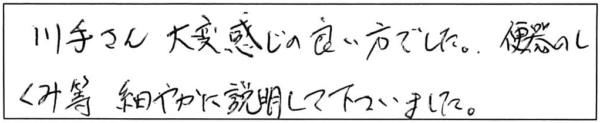 川手さん 大変感じの良い方でした。 便器のし
くみ等 細やかに説明して下さいました。